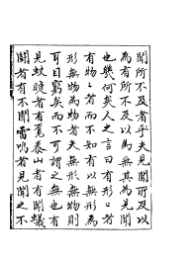 聞所不及者乎夫見聞所及以
為有所不及以為無其為見聞
也幾何矣人之言曰有形〻者
有物〻者而不知有以無形為
形無物為物者夫無形無物則
可目窮矣而不可謂之無也有
見蚊睫者有不見泰山者有聞蟻
鬭者有不聞雷鳴者見聞之不